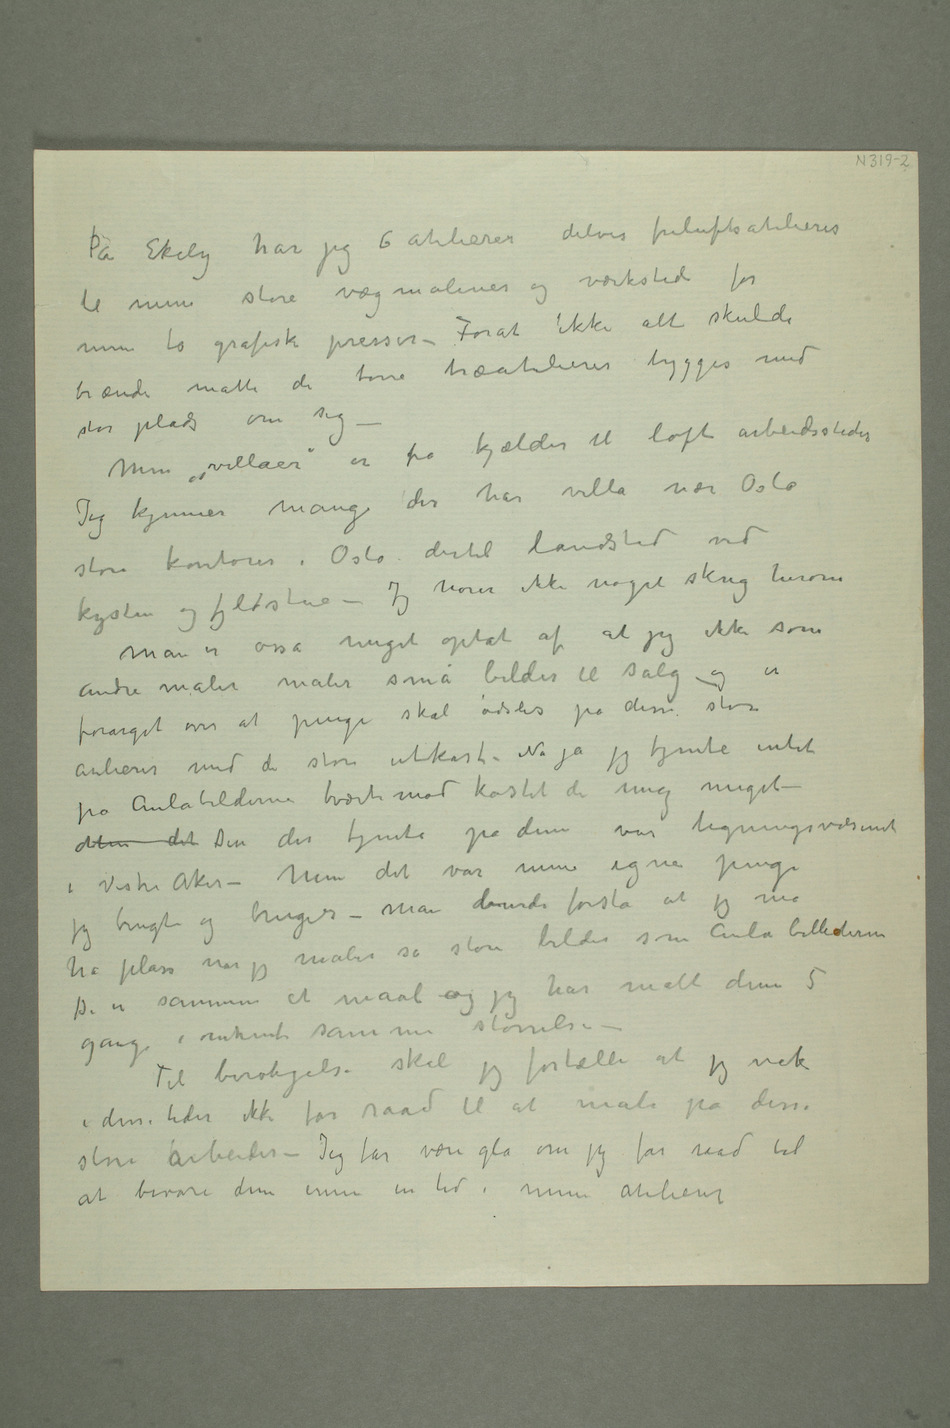 N319-2
På Ekely har jeg 6 atelierer delvis friluftsatelieres
til mine store vægmalerier og værksted for
mine to grafiske presser – Forat ikke alt skulde
brænde måtte de tørre træatelierer bygges med
stor plads om sig –
Mine „villaer" er fra kjælder til loft arbeidssteder
Jeg kjenner mange der har villa nær Oslo
store kontorer i Oslo dertil landsted ved
kysten og fjeldstue – Jeg hører ikke noget skrig herom
Man er også meget optat af at jeg ikke som
andre maler maler små bilder til salg – og er
forarget over at penge skal ødsles på disse store
atelierer med de store utkast. Na ja jeg tjente intet
på Aulabilderne tværtimod kostet de meg meget –
Men det Den der tjente på dem var ligningsvæsenet
i Vestre Aker – Men det var mine egne penge
jeg brugte og bruger – Man burde forstå at jeg må
ha plass når jeg maler så store bilder som Aulabillederne
De er sammen et maal og jeg har malt dem 5
gange i omtrent samme størrelse –
Til beroligelse skal jeg fortælle at jeg nok
i disse tider ikke får raad til at male på disse
store arbeider – Jeg får være gla om jeg får råd til
at bevare dem ennu en tid i mine atelierer